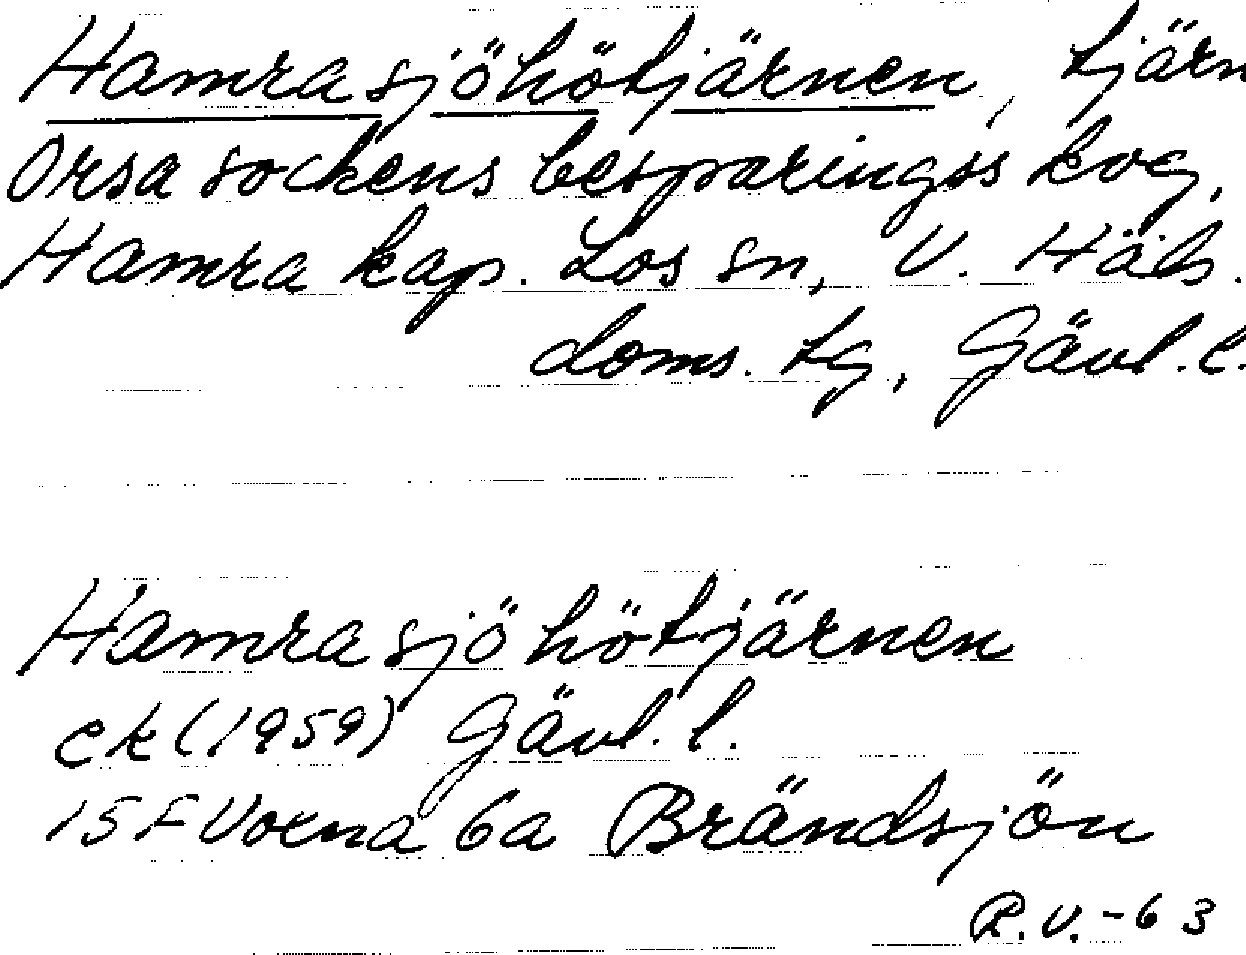 Hamrasjöhötjärnen, tjärn
Orsa sockens besparingsskog,
Hamra kap. Los sn, V. Häls.
doms. tg, Gävl.l.
Hamrasjöhötjärnen
ek (1959) Gävl. l.
15F Voxna 6a Brändsjön
R.V.-63